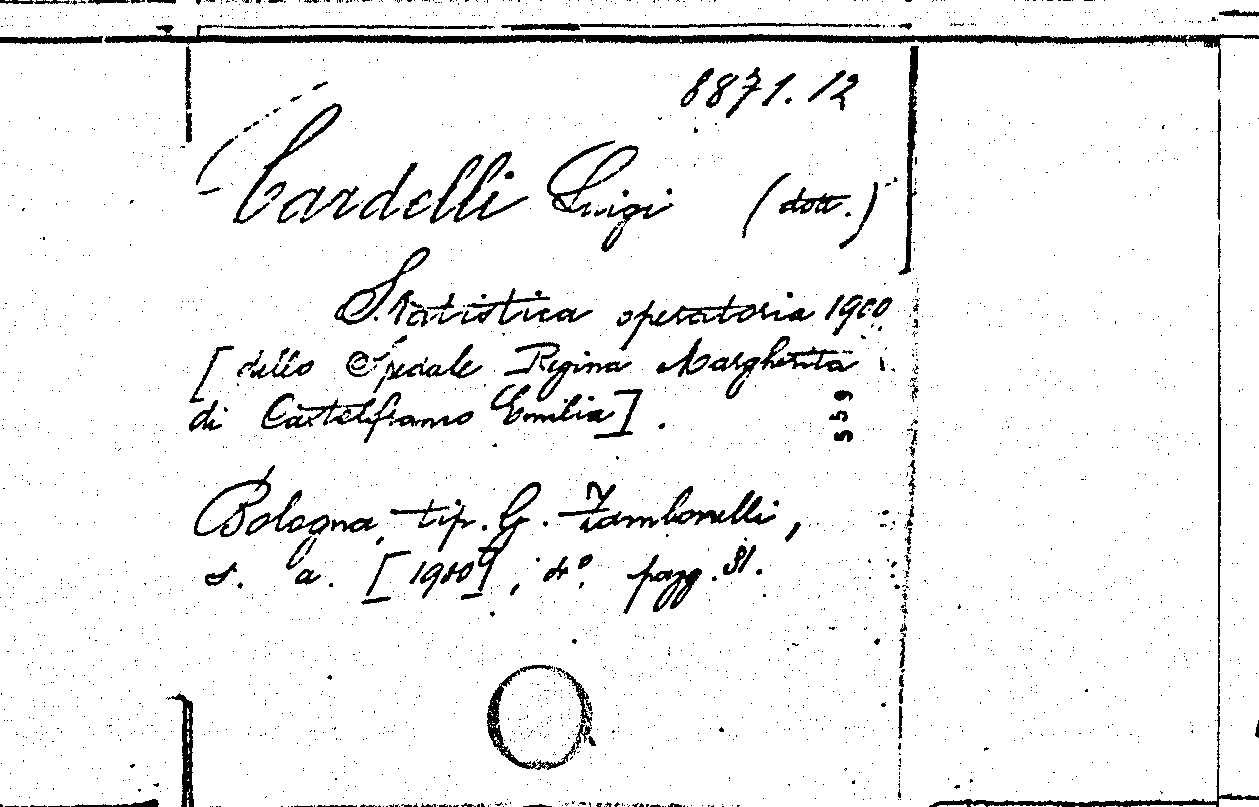 8871.12
Tardelli Luigi (dott.)
Statistica operatoria 1900
[dello Spedale Regina Margherita
di Castelfranco Emilia].
559
Bologna, tip. G. Zambonelli,
s. a. [1900], 4°. pagg. 31.